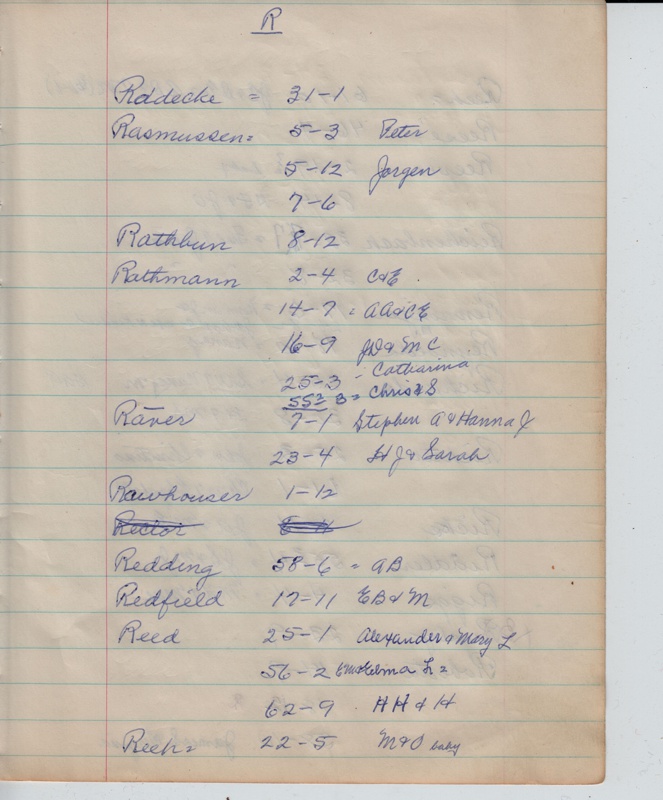 R
Raddecke = 31-1
Rasmussen = 5-3 Peter
5-12 Jorgen
7-6
Rathbun 8-12
Rathmann 2-4 C&E
14-7 = AA&CE
16-9 JD & MC
25-3 - Catharina
55 3 = Chris & S
Räver 7-1 Stephen A & Hanna J
23-4 H J & Sarah
Rawhouser 1-12
Rector
Redding 58-6 = AB
Redfield 17-11 EB & M
Reed 25-1 Alexander & Mary L
56-2
62-9 HH & H
Reeh = 22-5 M&O baby